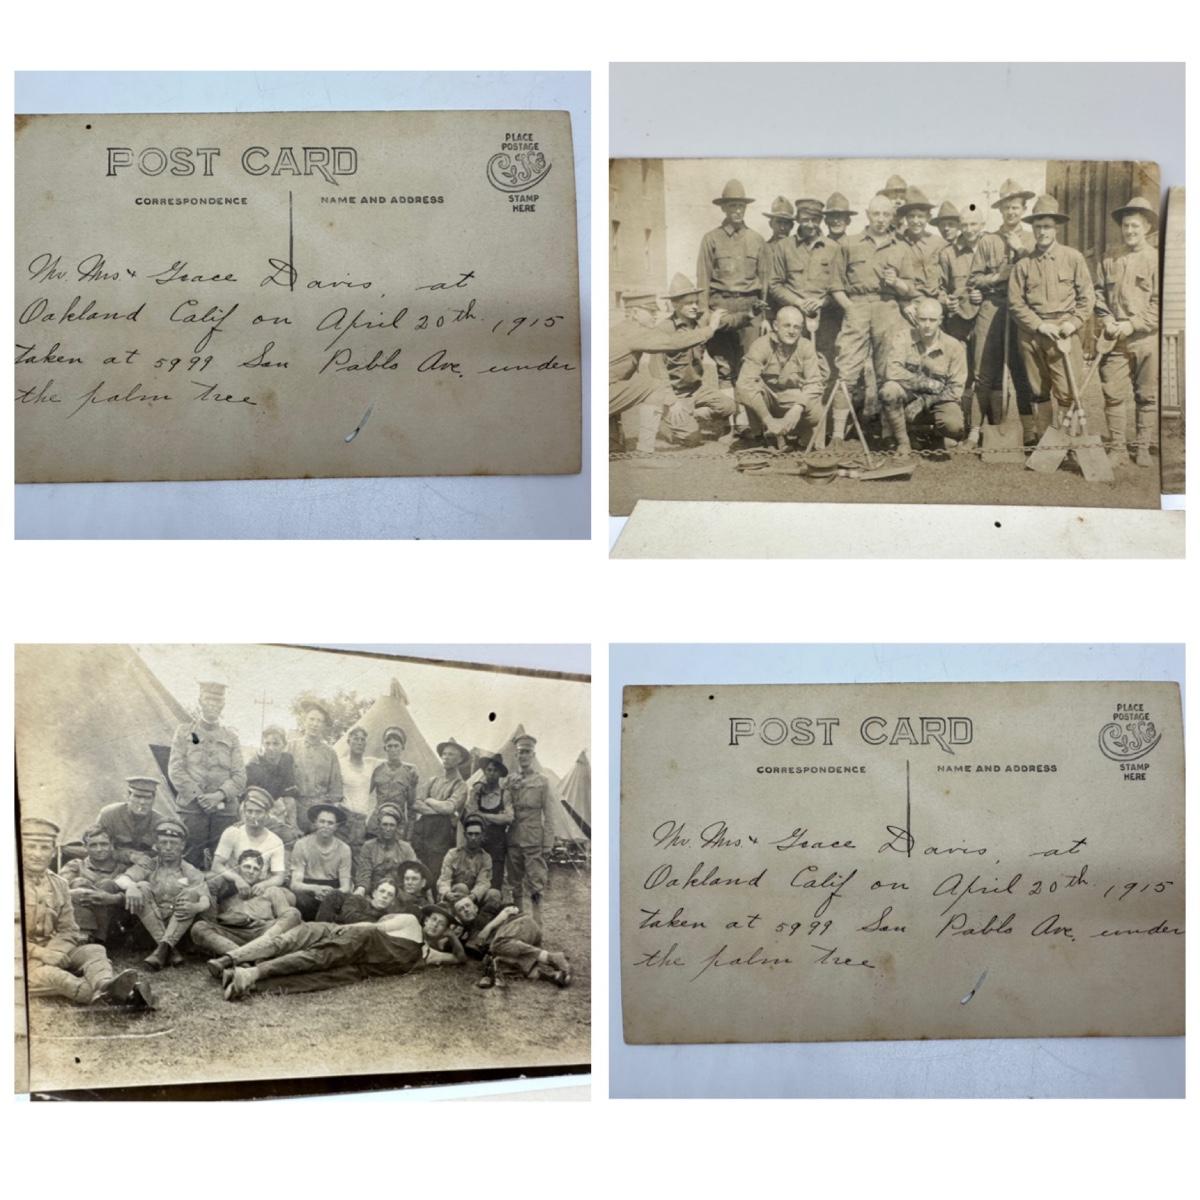 POST CARD
PLACE
POSTAGE
STAMP
HERE
CORRESPONDENCE
NAME AND ADDRESS
Mr. Mrs + Grace Davis, at
Oakland Calif on April 20th, 1915
taken at 5999 San Pablo Ave. under
the palm tree
POST CARD
PLACE
POSTAGE
STAMP
HERE
CORRESPONDENCE
NAME AND ADDRESS
Mr. Mrs. + Grace Davis, at
Oakland Calif on April 20th, 1915
taken at 5999 San Pablo Ave. under
the palm tree